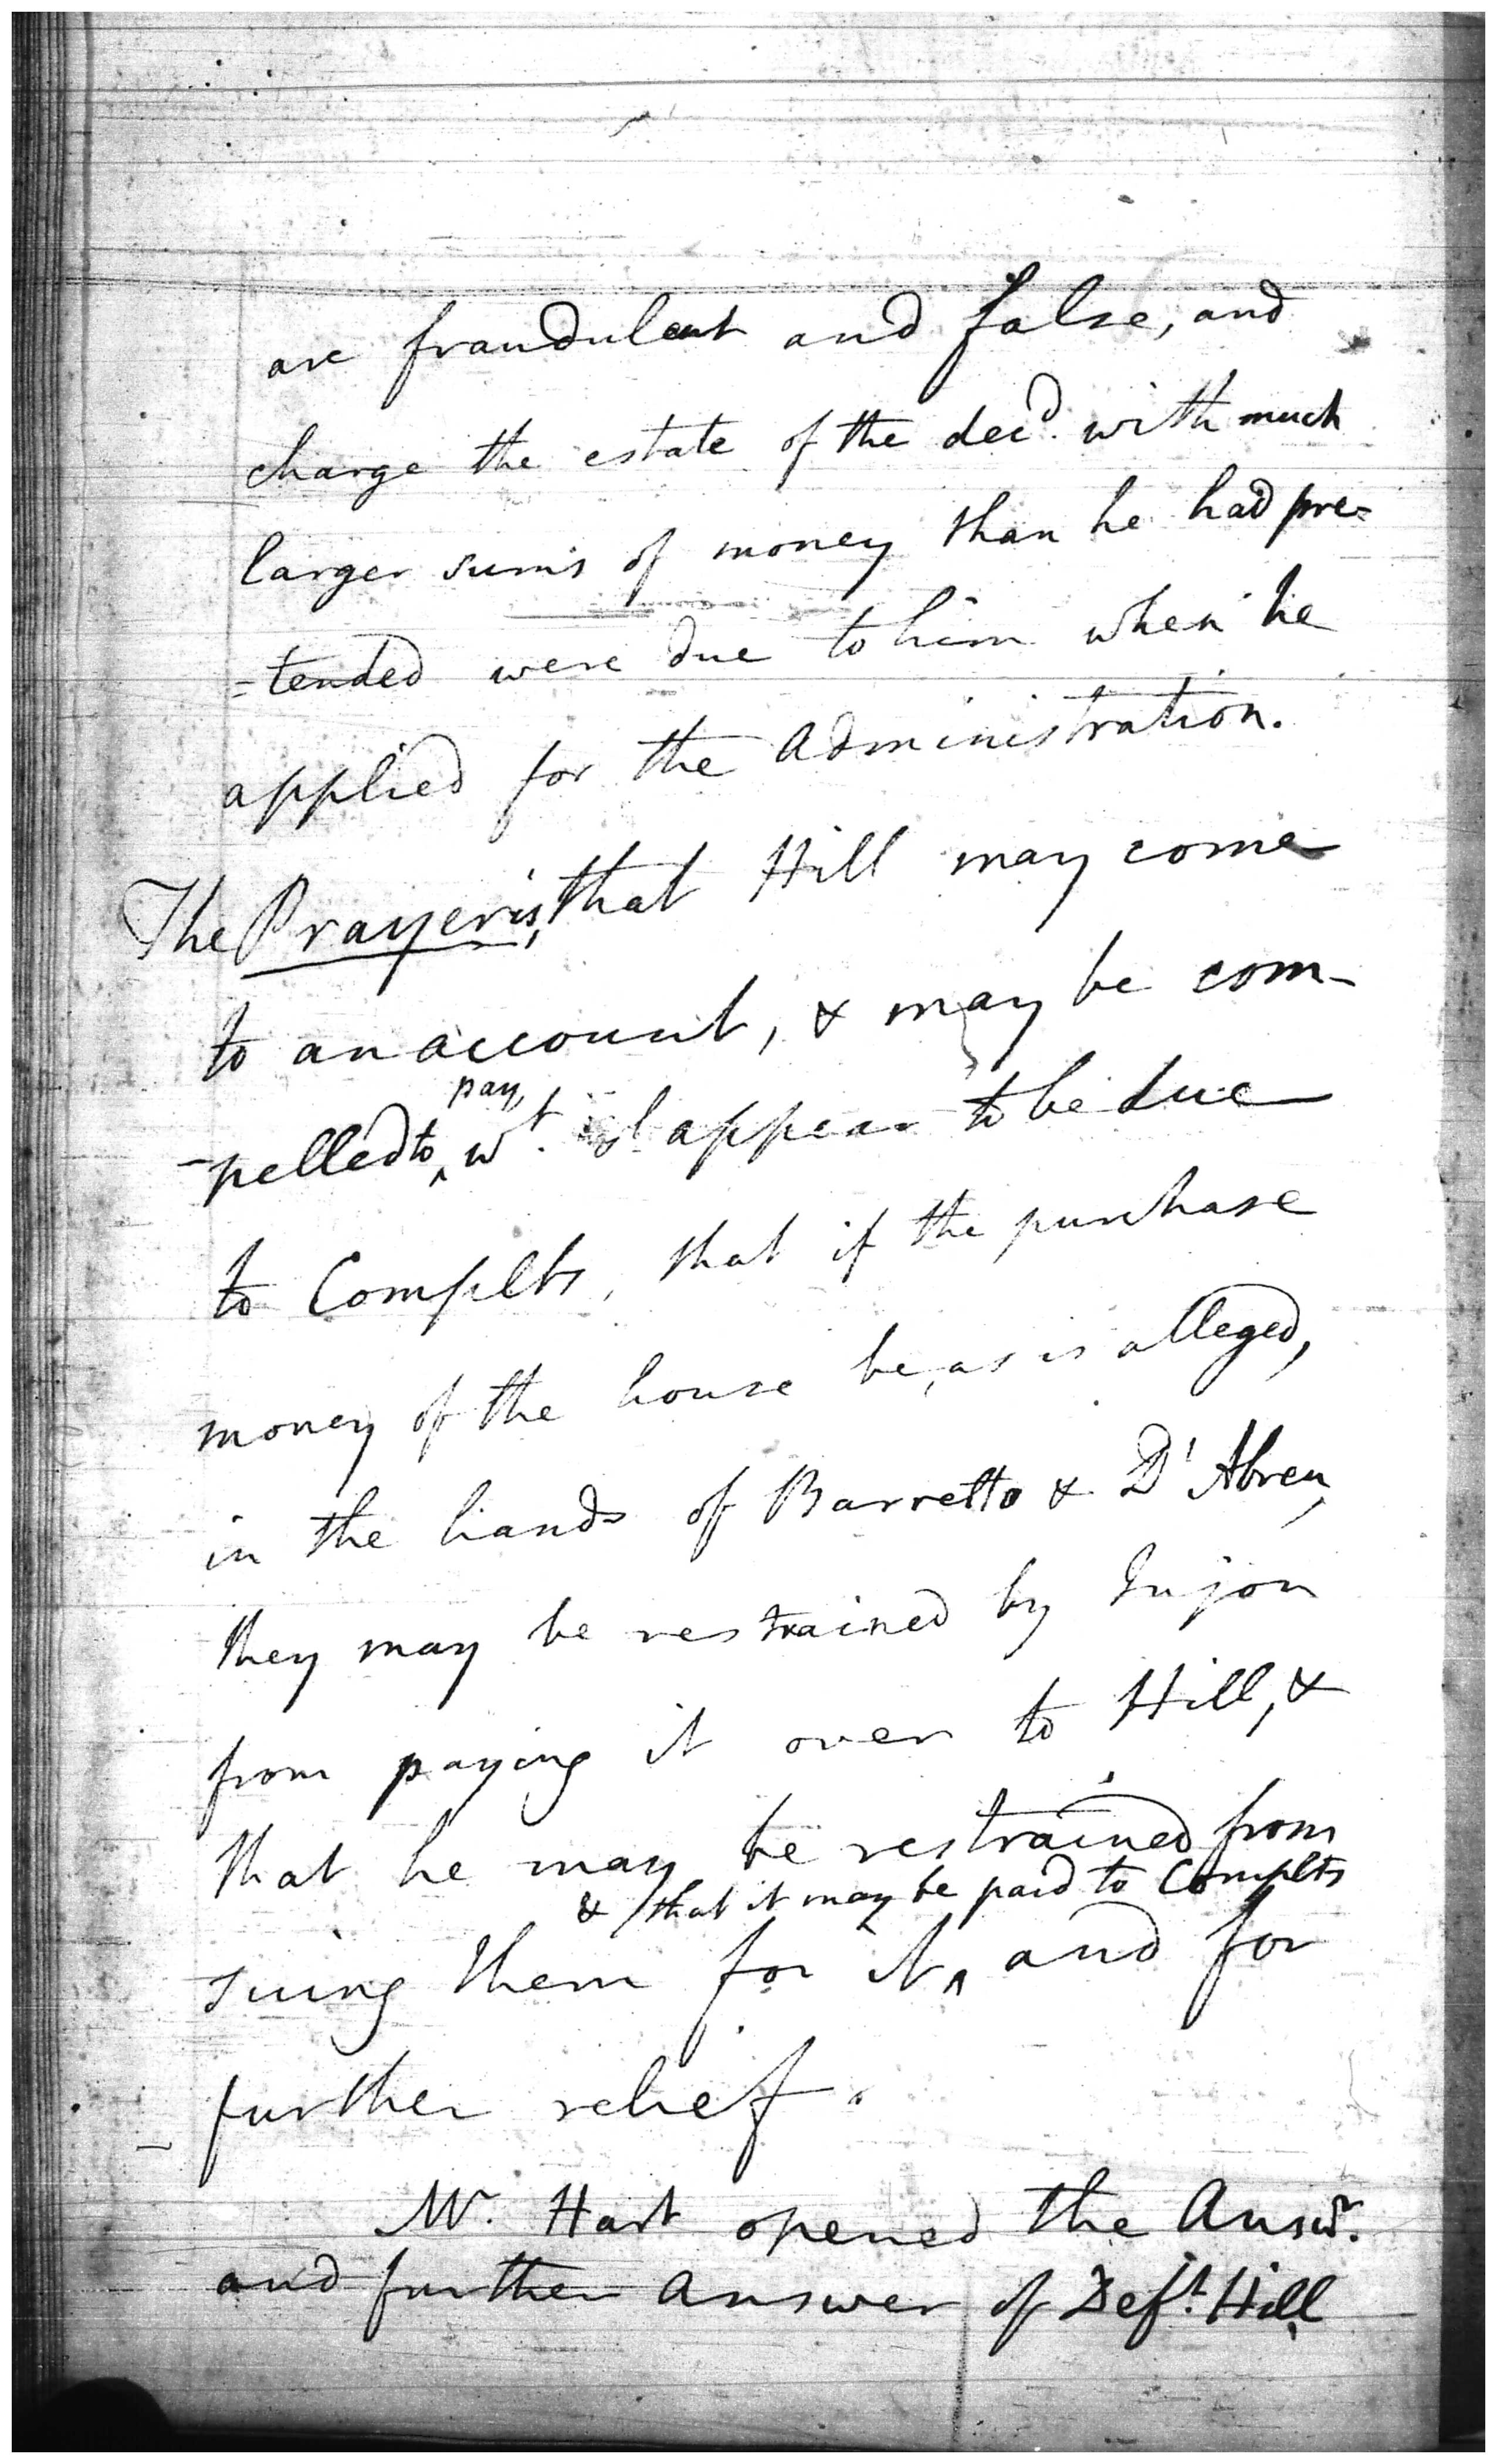 are fraudulent and false, and
charge the estate of the decd. with much
larger sums of money than he had pre=
=tended were due to him when he
applied for the Administration.
The Prayer is, that Hill may come
to an account, & may be com-
pay
-pelled to ^ wt. shl appear to be due
to Complts, that if the purchase
money of the house be, as is alleged,
in the hands of Barretto & D'Abreu,
they may be restrained by Injon
from paying it over to Hill, &
that he may be restrained from
& that it may be paid to Complts
suing them for it ^ and for
further relief.
Mr. Hart opened the Answr.
and further answer of Deft. Hill